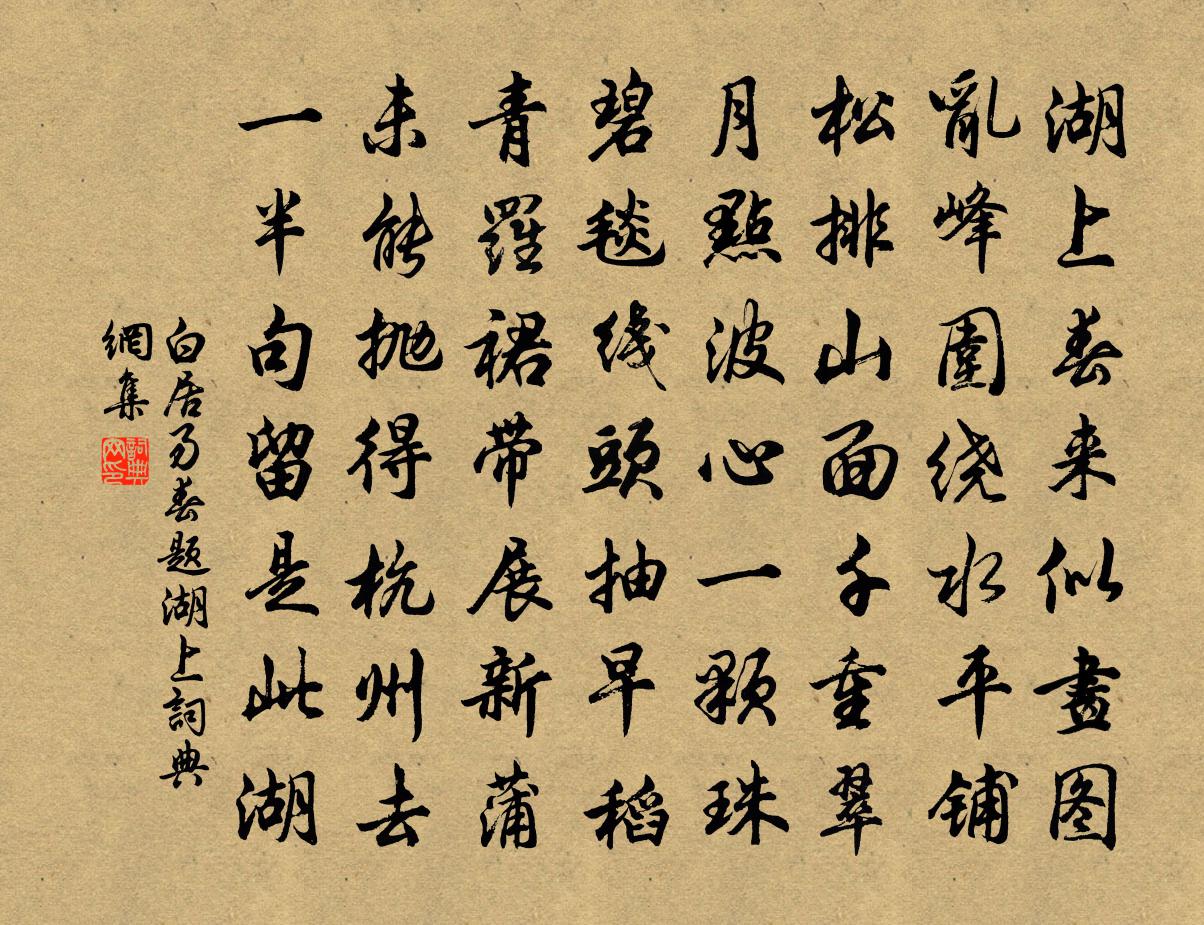 湖上春来似畫图
亂峰圍绕水平铺
松排山面千重翠
月點波心一顆珠
碧毯线頭抽早稻
青羅裙带展新蒲
未能抛得杭州去
一半句留是此湖
白居易春题湖上詞典
網集
詞典
网印